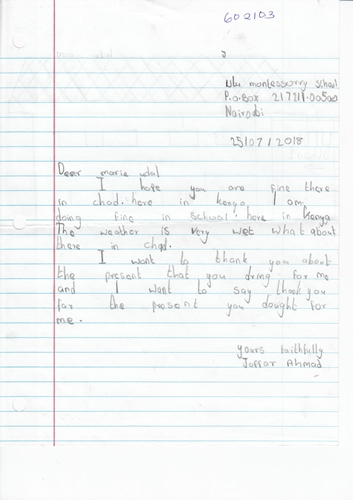 602103
Nu montessorry school
P.o.Box 217211.00500
Nairobi
25/07/2018
Dear marie
I hope you are fine there
in chad. here in kenya I am
doing fine in school. here in Kenya
The weather is very wet what about
there in chad.
I want to thank you about
the present that you dring for me
and I want to say thank you
for the present you dought for
me.
yours faithfully
Joffar Ahmad